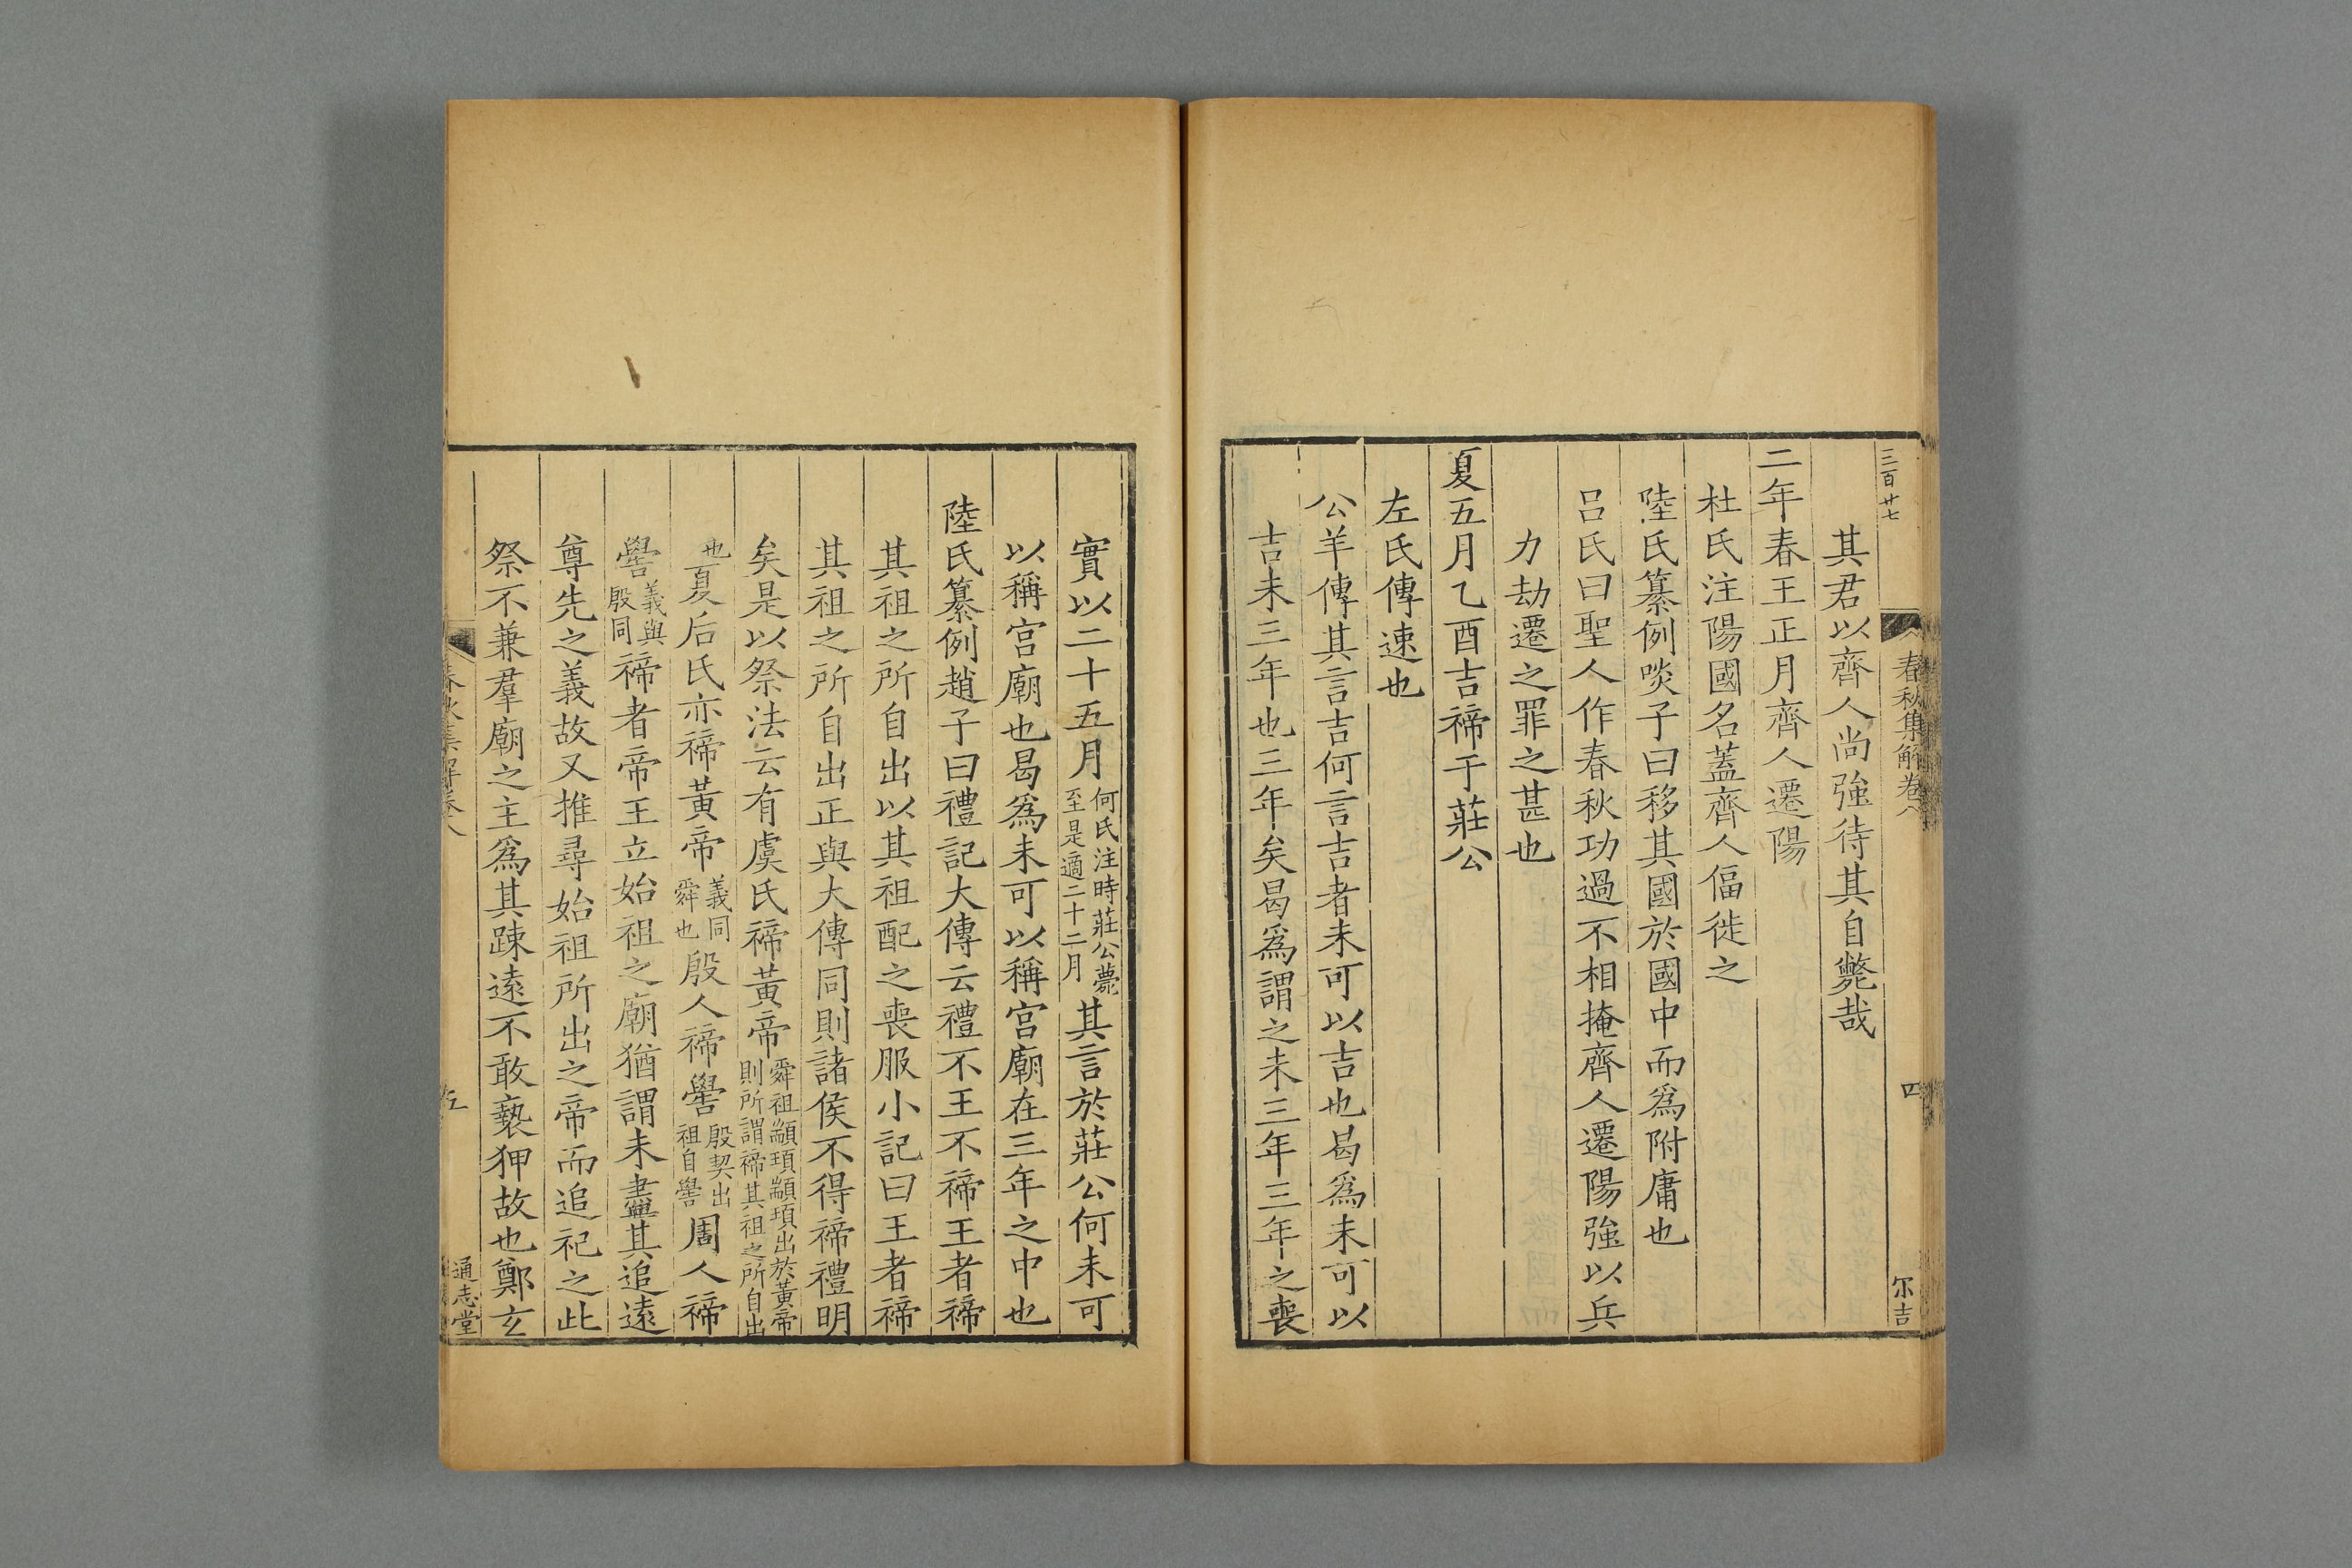 三百廿七
春秋集解卷八
四
尔吉
其君以齊人尚強待其自斃哉
二年春王正月齊人遷陽
杜氏注陽國名蓋齊人偪徙之
陸氏纂例啖子曰移其國於國中而爲附庸也
呂氏曰聖人作春秋功過不相掩齊人遷陽強以兵
力劫遷之罪之甚也
夏五月乙酉吉禘于莊公
左氏傳速也
公羊傳其言吉何言吉者未可以吉也曷爲未可以
吉未三年也三年矣曷爲謂之未三年三年之喪
實以二十五月何氏注時莊公薨至是適二十二月其言於莊公何未可
以稱宮廟也曷爲未可以稱宮廟在三年之中也
陸氏纂例趙子曰禮記大傳云禮不王不禘王者禘
其祖之所自出以其祖配之喪服小記曰王者禘
其祖之所自出正與大傳同則諸侯不得禘禮明
矣是以祭法云有虞氏禘黃帝舜祖顓頊顓頊出於黃帝則所謂禘其祖之所自出
也夏后氏亦禘黃帝義同舜也殷人禘嚳殷契出祖自嚳周人禘
嚳義與殷同禘者帝王立始祖之廟猶謂未盡其追遠
尊先之義故又推尋始祖所出之帝而追祀之此
祭不兼羣廟之主爲其踈遠不敢褻狎故也鄭玄
春秋集解卷八
五
通志堂